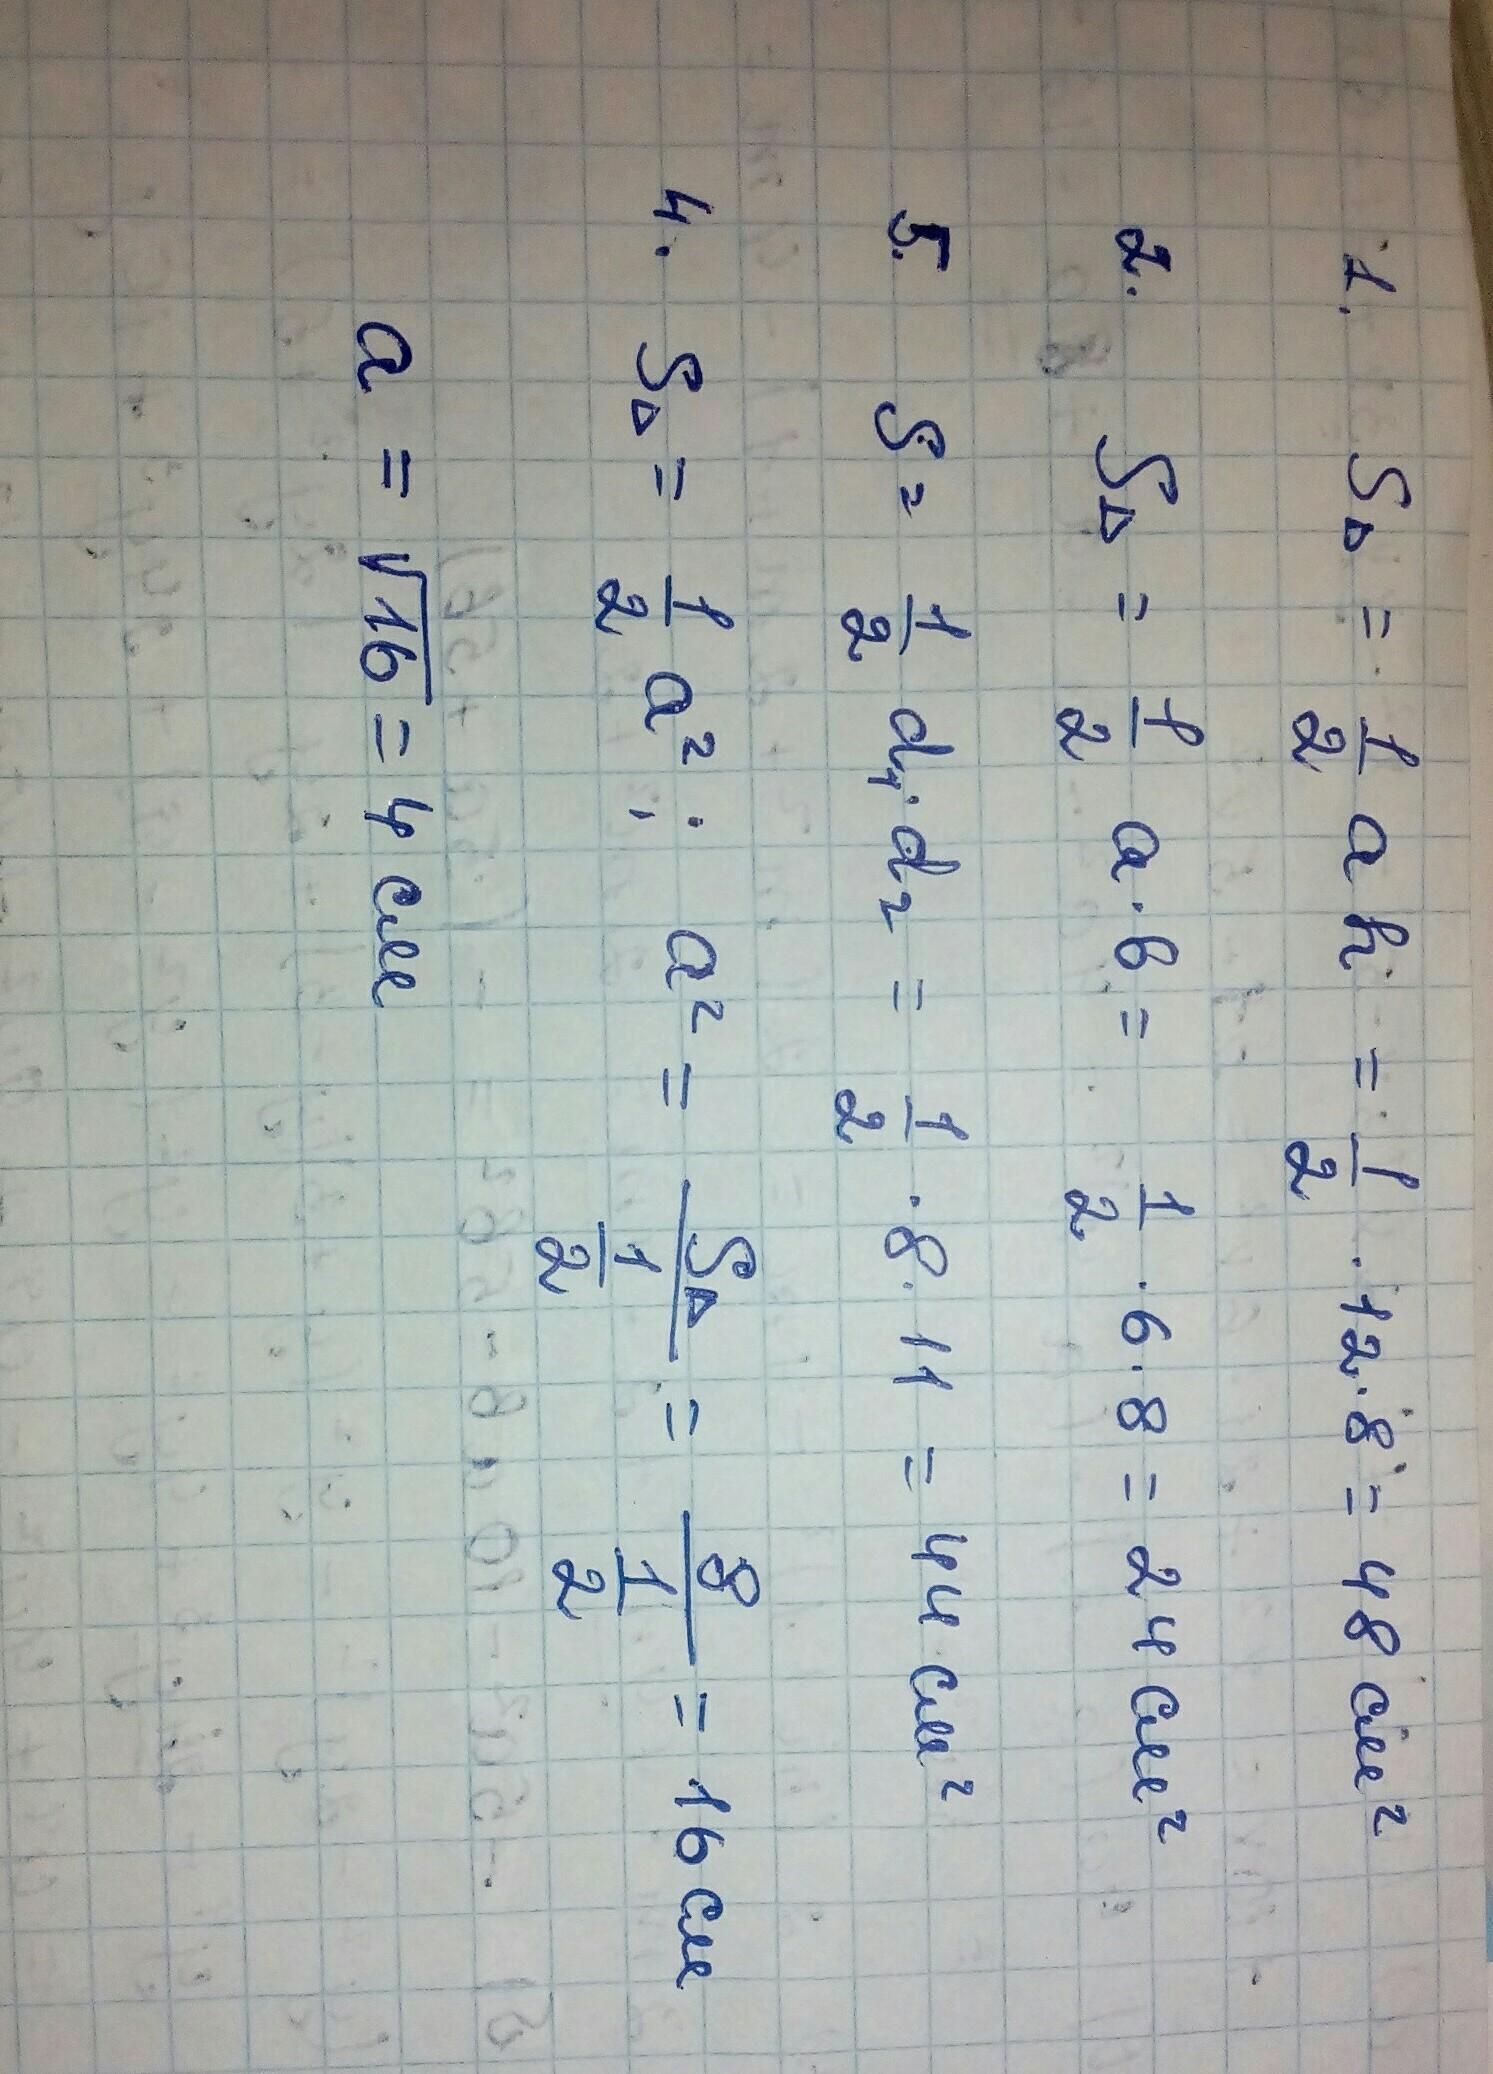 1. S△ = 1/2 a h = 1/2 · 12 · 8 = 48 см²
2. S△ = 1/2 a · b = 1/2 · 6 · 8 = 24 см²
5. S = 1/2 d₁ · d₂ = 1/2 · 8 · 11 = 44 см²
4. S△ = 1/2 a² ; a² = S△/(1/2) = 8/(1/2) = 16 см
a = √16 = 4 см